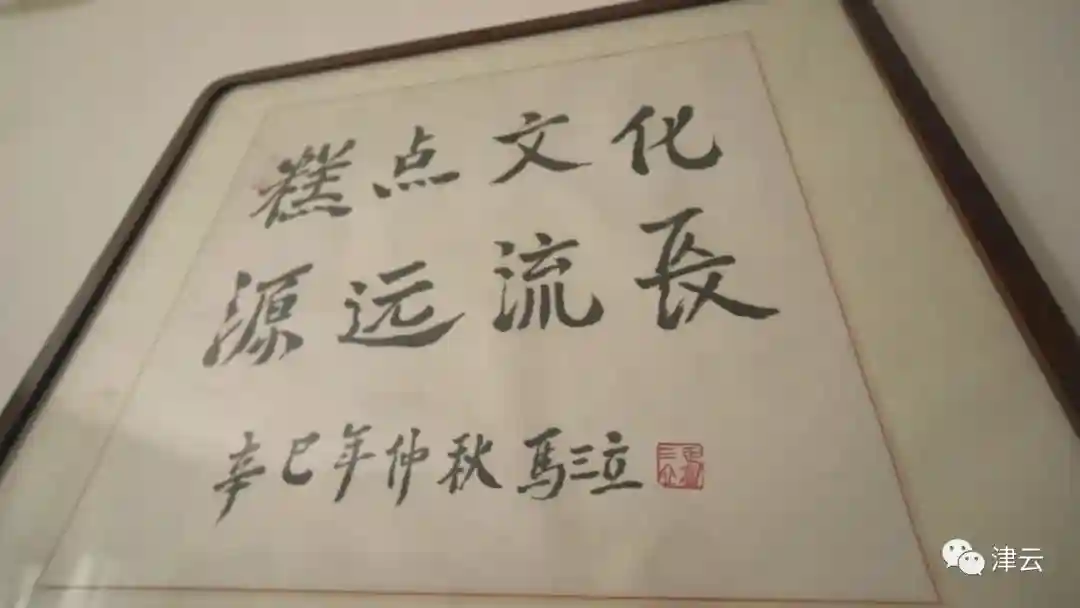 糕点文化
源远流長
辛巳年仲秋 馬三立
津云